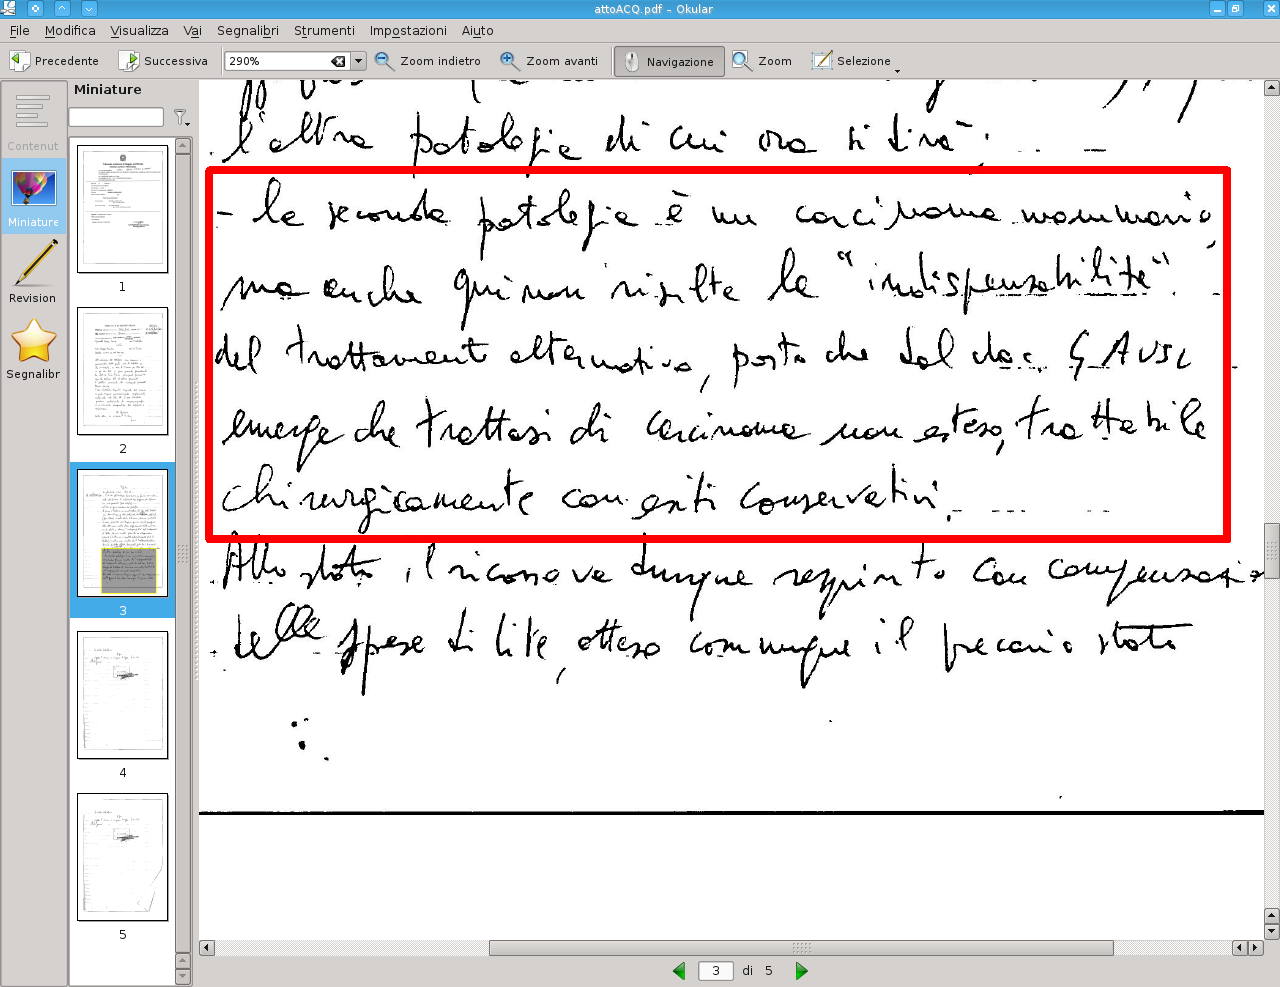 attoACQ.pdf – Okular
File Modifica Visualizza Vai Segnalibri Strumenti Impostazioni Aiuto
Precedente Successiva 290% Zoom indietro Zoom avanti Navigazione Zoom Selezione
Contenut
Miniature
Revision
Segnalibr
Miniature
1
2
3
4
5
l'altra patologia di cui ora si dirà;
- la seconda patologia è un carcinoma mammario,
ma anche qui non risulta la "indispensabilità"
del trattamento alternativo, posto che dal doc. 5 AUSL
emerge che trattasi di carcinoma non esteso, trattabile
chirurgicamente con esiti conservativi.
Allo stato, il ricorso va dunque respinto con compensazio
delle spese di lite, atteso comunque il precario stato
3 di 5